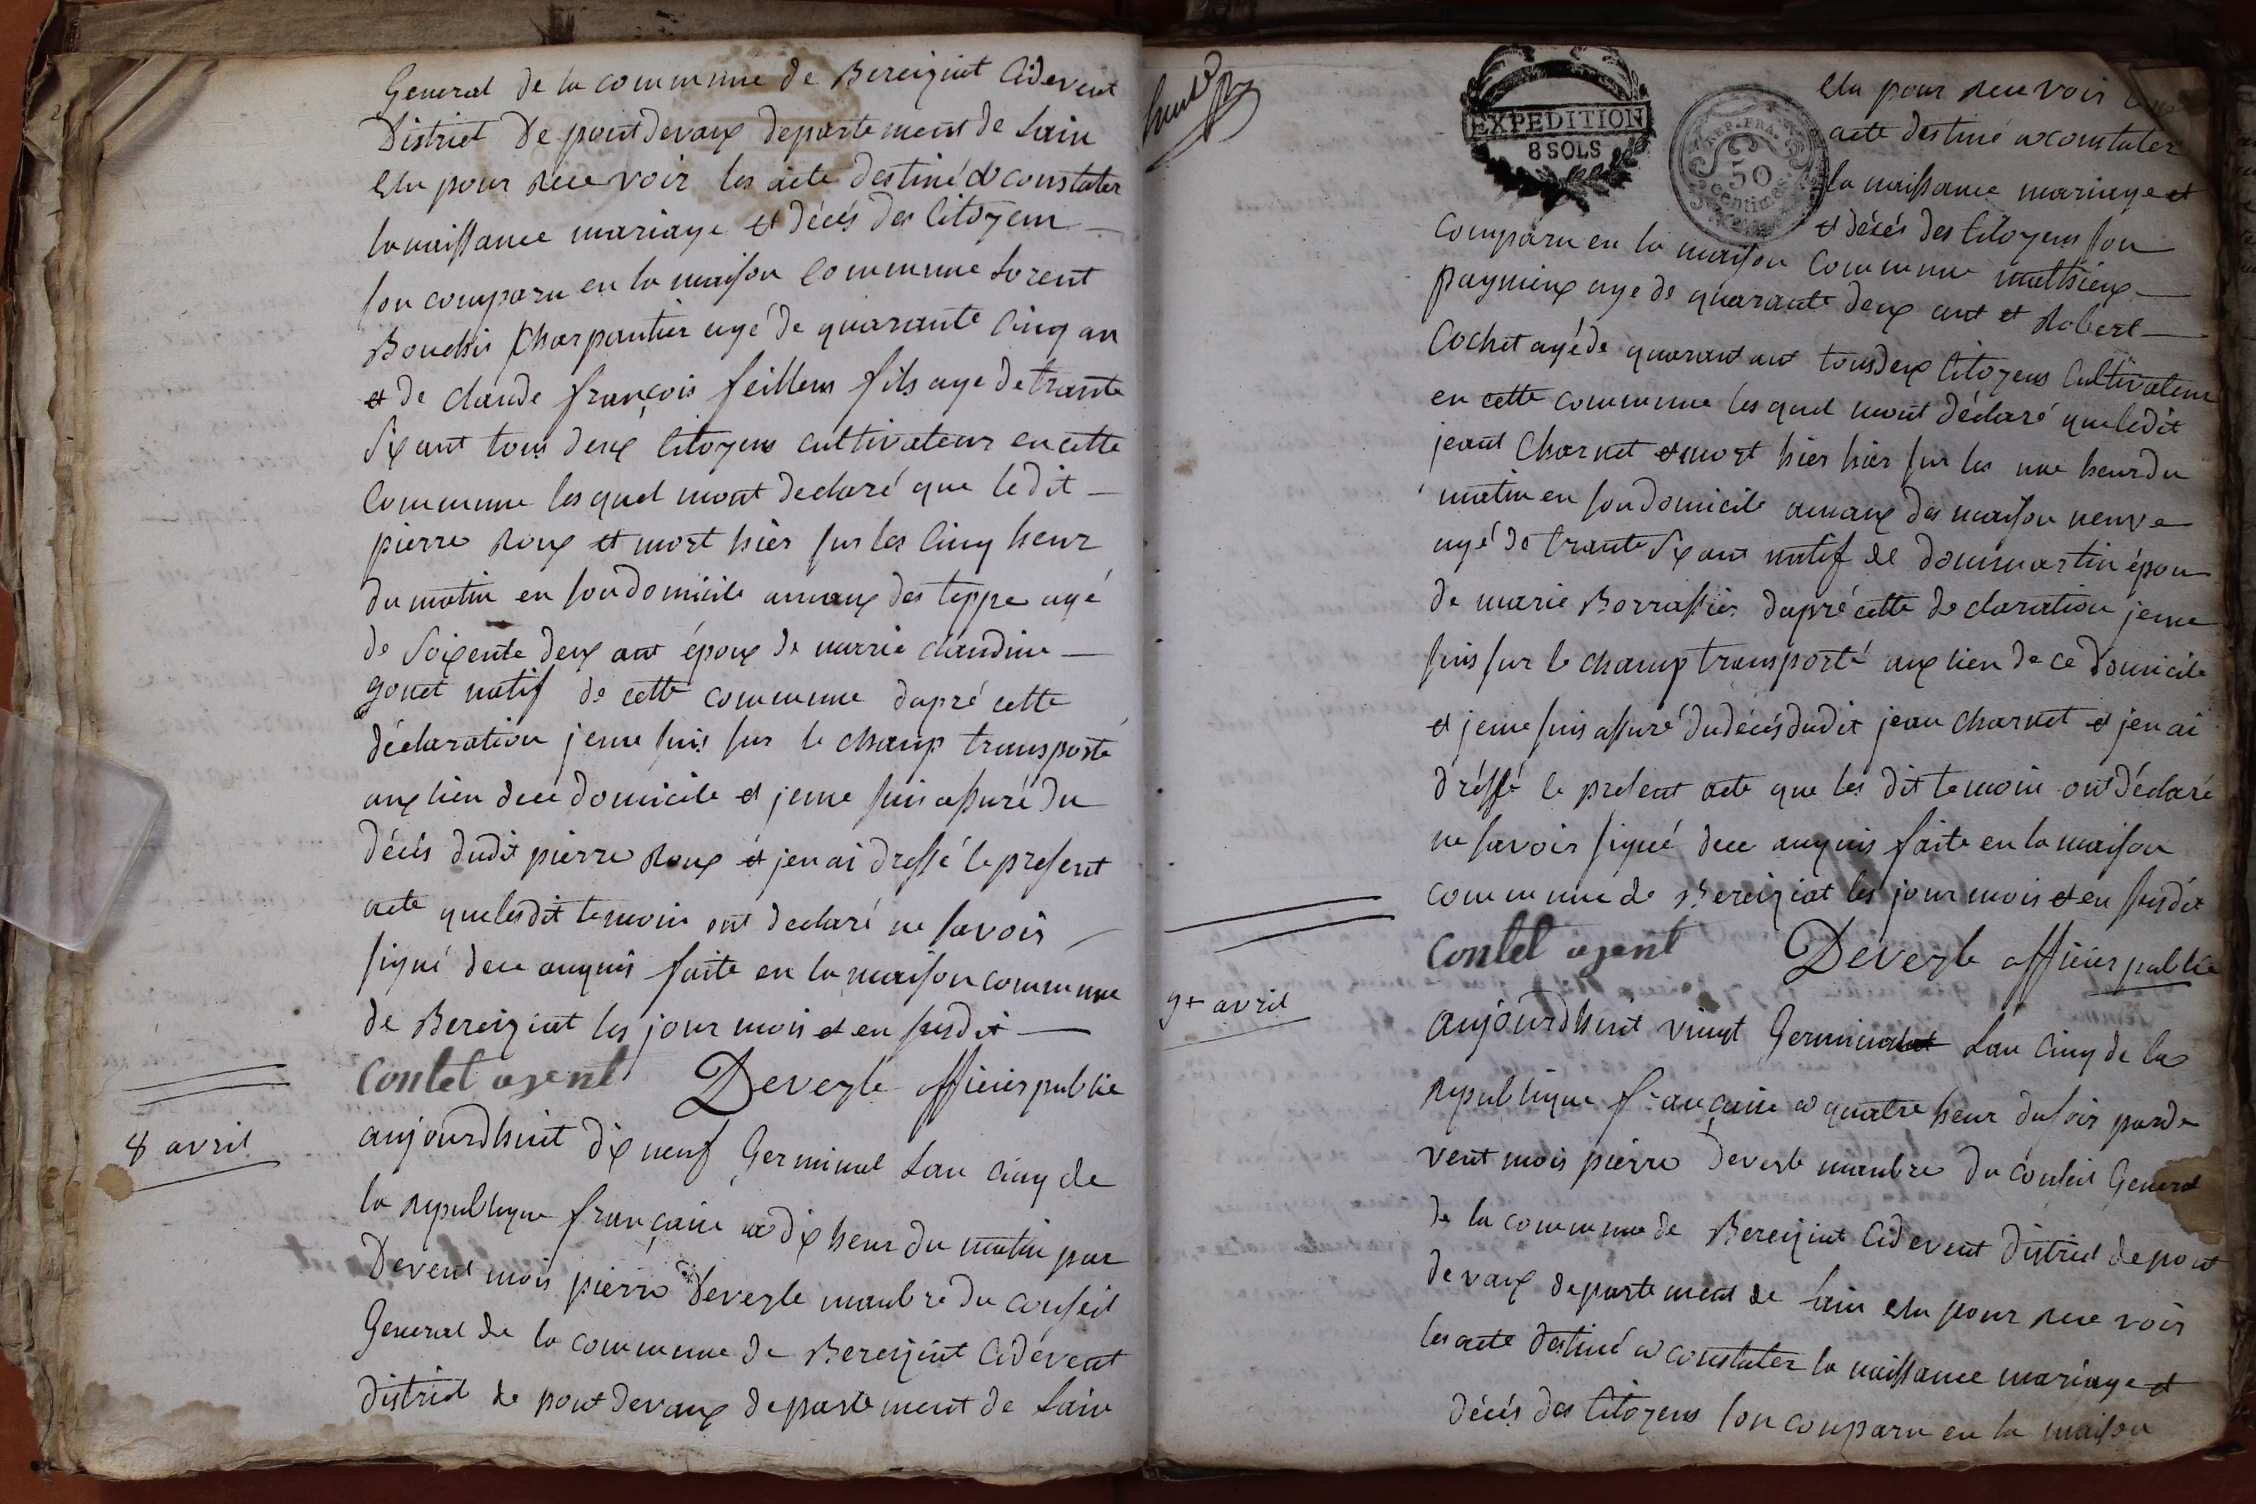 General de la commune de Bereiziat Cidevent
District De pontdevaux departement de Lain
Elu pour Recevoir les acte destiné a constater
la naissance mariage et décés des Citoyem
son comparu en la maison Commune Lorent
Bouchis Charpantier agé de quarante Cinq an
et de claude françois feillens fils age de trante
Six ant tous deux Citoyens cultivateur en cette
Commune lesquel mont declaré que ledit
pierre Roux et mort hier sur les Cinq heur
du matin en son domicile amaux des teppe agé
de Soixente deux ant époux de marie claudine
gonet natif de cette commune dapré cette
déclaration jeme suis sur le champ transporté
aux lieu dece domicile et jeme suis assuré du
décés dudit pierre Roux et jen ai dressé le present
acte que lesdit temoin ont declaré ne savois
signé dece anquis faite en la maison commune
de Bereiziat les jour mois et en susdit
Contet agent Deveyle officier public
8 avril
aujourdhuit dix neuf Germinal Lan Cinq de
la Republique françaine a dix heur du matin par
Devent mois pierre Deveyle manbre du conseil
General de la commune de Bereiziat Cidevent
district de pont devaux departement de Lain
EXPEDITION
8 SOLS
REP. FRA.
50
centimes
Elu pour Recevoir
acte destiné a constater
la naissance mariage et
et décés des Citoyens son
Comparu en la maison Commune mathieux
paynieux age de quarante deux ant et Robert
Cochet agé de quarant ant tousdeux Citoyens Cultivateur
en cette commune lesquel mont déclaré que ledit
jeant Charnet et mort hier hier sur les une heur du
matin en son domicile amaux des maison neuve
agé de trante Six ant natif de dommartin époux
de marie Borrassier dapré cette declaration jeme
suis sur le champ transporté aux lieu de ce domicile
et jeme suis assuré du décés dudit jean Charnet et jen ai
dréssé le present acte que les dit temoin ont déclaré
ne savoir signé dece anquis faite en la maison
commune de Bereiziat les jour mois et en susdit
Contet agent Deveyle officier public
9+ avril
aujourdhuit vingt Germinal Lan Cinq de la
Republique françaine a quatre heur du soir parde
vent mois pierre Deveyle manbre du conseil General
de la commune de Bereiziat Cidevent district de pont
devaux departement de Lain Elu pour Recevoir
les acte destiné a constater la naissance mariage et
décés des Citoyens son comparu en la maison